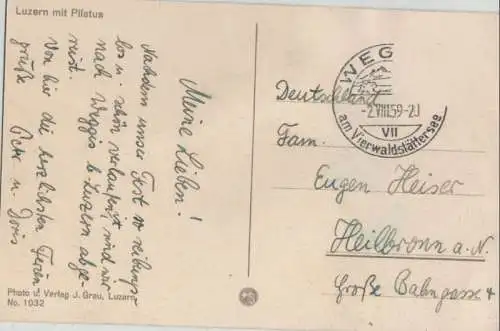 Luzern mit Pilatus
Meine Lieben!
Nachdem unser Fest so reibungs-
los u. schön verlaufen ist sind wir
nach Weggis b. Luzern abge-
reist.
Von hier die herzlichsten Ferien-
grüße
u. Doris
Photo u. Verlag J. Grau, Luzern
No. 1032
WEG
-2.VIII.59-20
VII
am Vierwaldstättersee
Deutschland
Fam.
Eugen Heiser
Heilbronn a. N.
Große Bahngasse 4